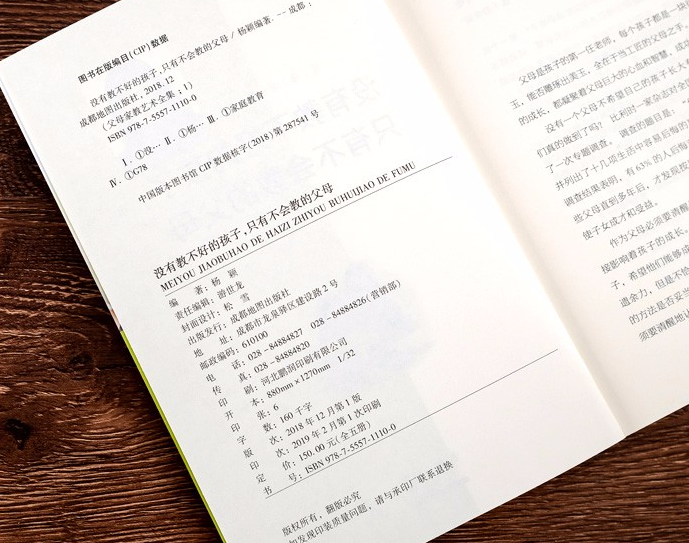 图书在版编目(CIP)数据
没有教不好的孩子,只有不会教的父母 / 杨颖编著. -- 成都:
成都地图出版社, 2018.12
(父母家教艺术全集;1)
ISBN 978-7-5557-1110-0
Ⅰ. ①没… Ⅱ. ①杨… Ⅲ. ①家庭教育
Ⅳ. ①G78
中国版本图书馆 CIP 数据核字(2018)第 287541 号
没有教不好的孩子,只有不会教的父母
MEIYOU JIAOBUHAO DE HAIZI ZHIYOU BUHUIJIAO DE FUMU
编 著:杨 颖
责任编辑:游世龙
封面设计:松 雪
出版发行:成都地图出版社
地 址:成都市龙泉驿区建设路 2 号
邮政编码:610100
电 话:028-84884827 028-84884826(营销部)
传 真:028-84884820
印 刷:河北鹏润印刷有限公司
开 本:880mm×1270mm 1/32
印 张:6
字 数:160 千字
版 次:2018 年 12 月第 1 版
印 次:2019 年 2 月第 1 次印刷
定 价:150.00 元(全五册)
书 号:ISBN 978-7-5557-1110-0
版权所有,翻版必究
如发现印装质量问题,请与承印厂联系退换
父母是孩子的第一任老师,每个孩子都是一块
玉,能否雕琢出美玉,全在于当工匠的父母之手,
的成长,都凝聚着父母巨大的心血和智慧,成
没有一个父母不希望自己的孩子长大
们真的做到了吗?比利时一某杂志对全
了一次专题调查。调查的题目是:“
并列出了十几项生活中容易后悔的
调查结果表明,有 63% 的人后悔
些父母直到多年后,才发现教
使子女成才和受益。
作为父母必须要清醒
接影响着孩子的成长。
子,希望他们能够成
遗余力,但是不恰
的方法是否妥当
须要清醒地认